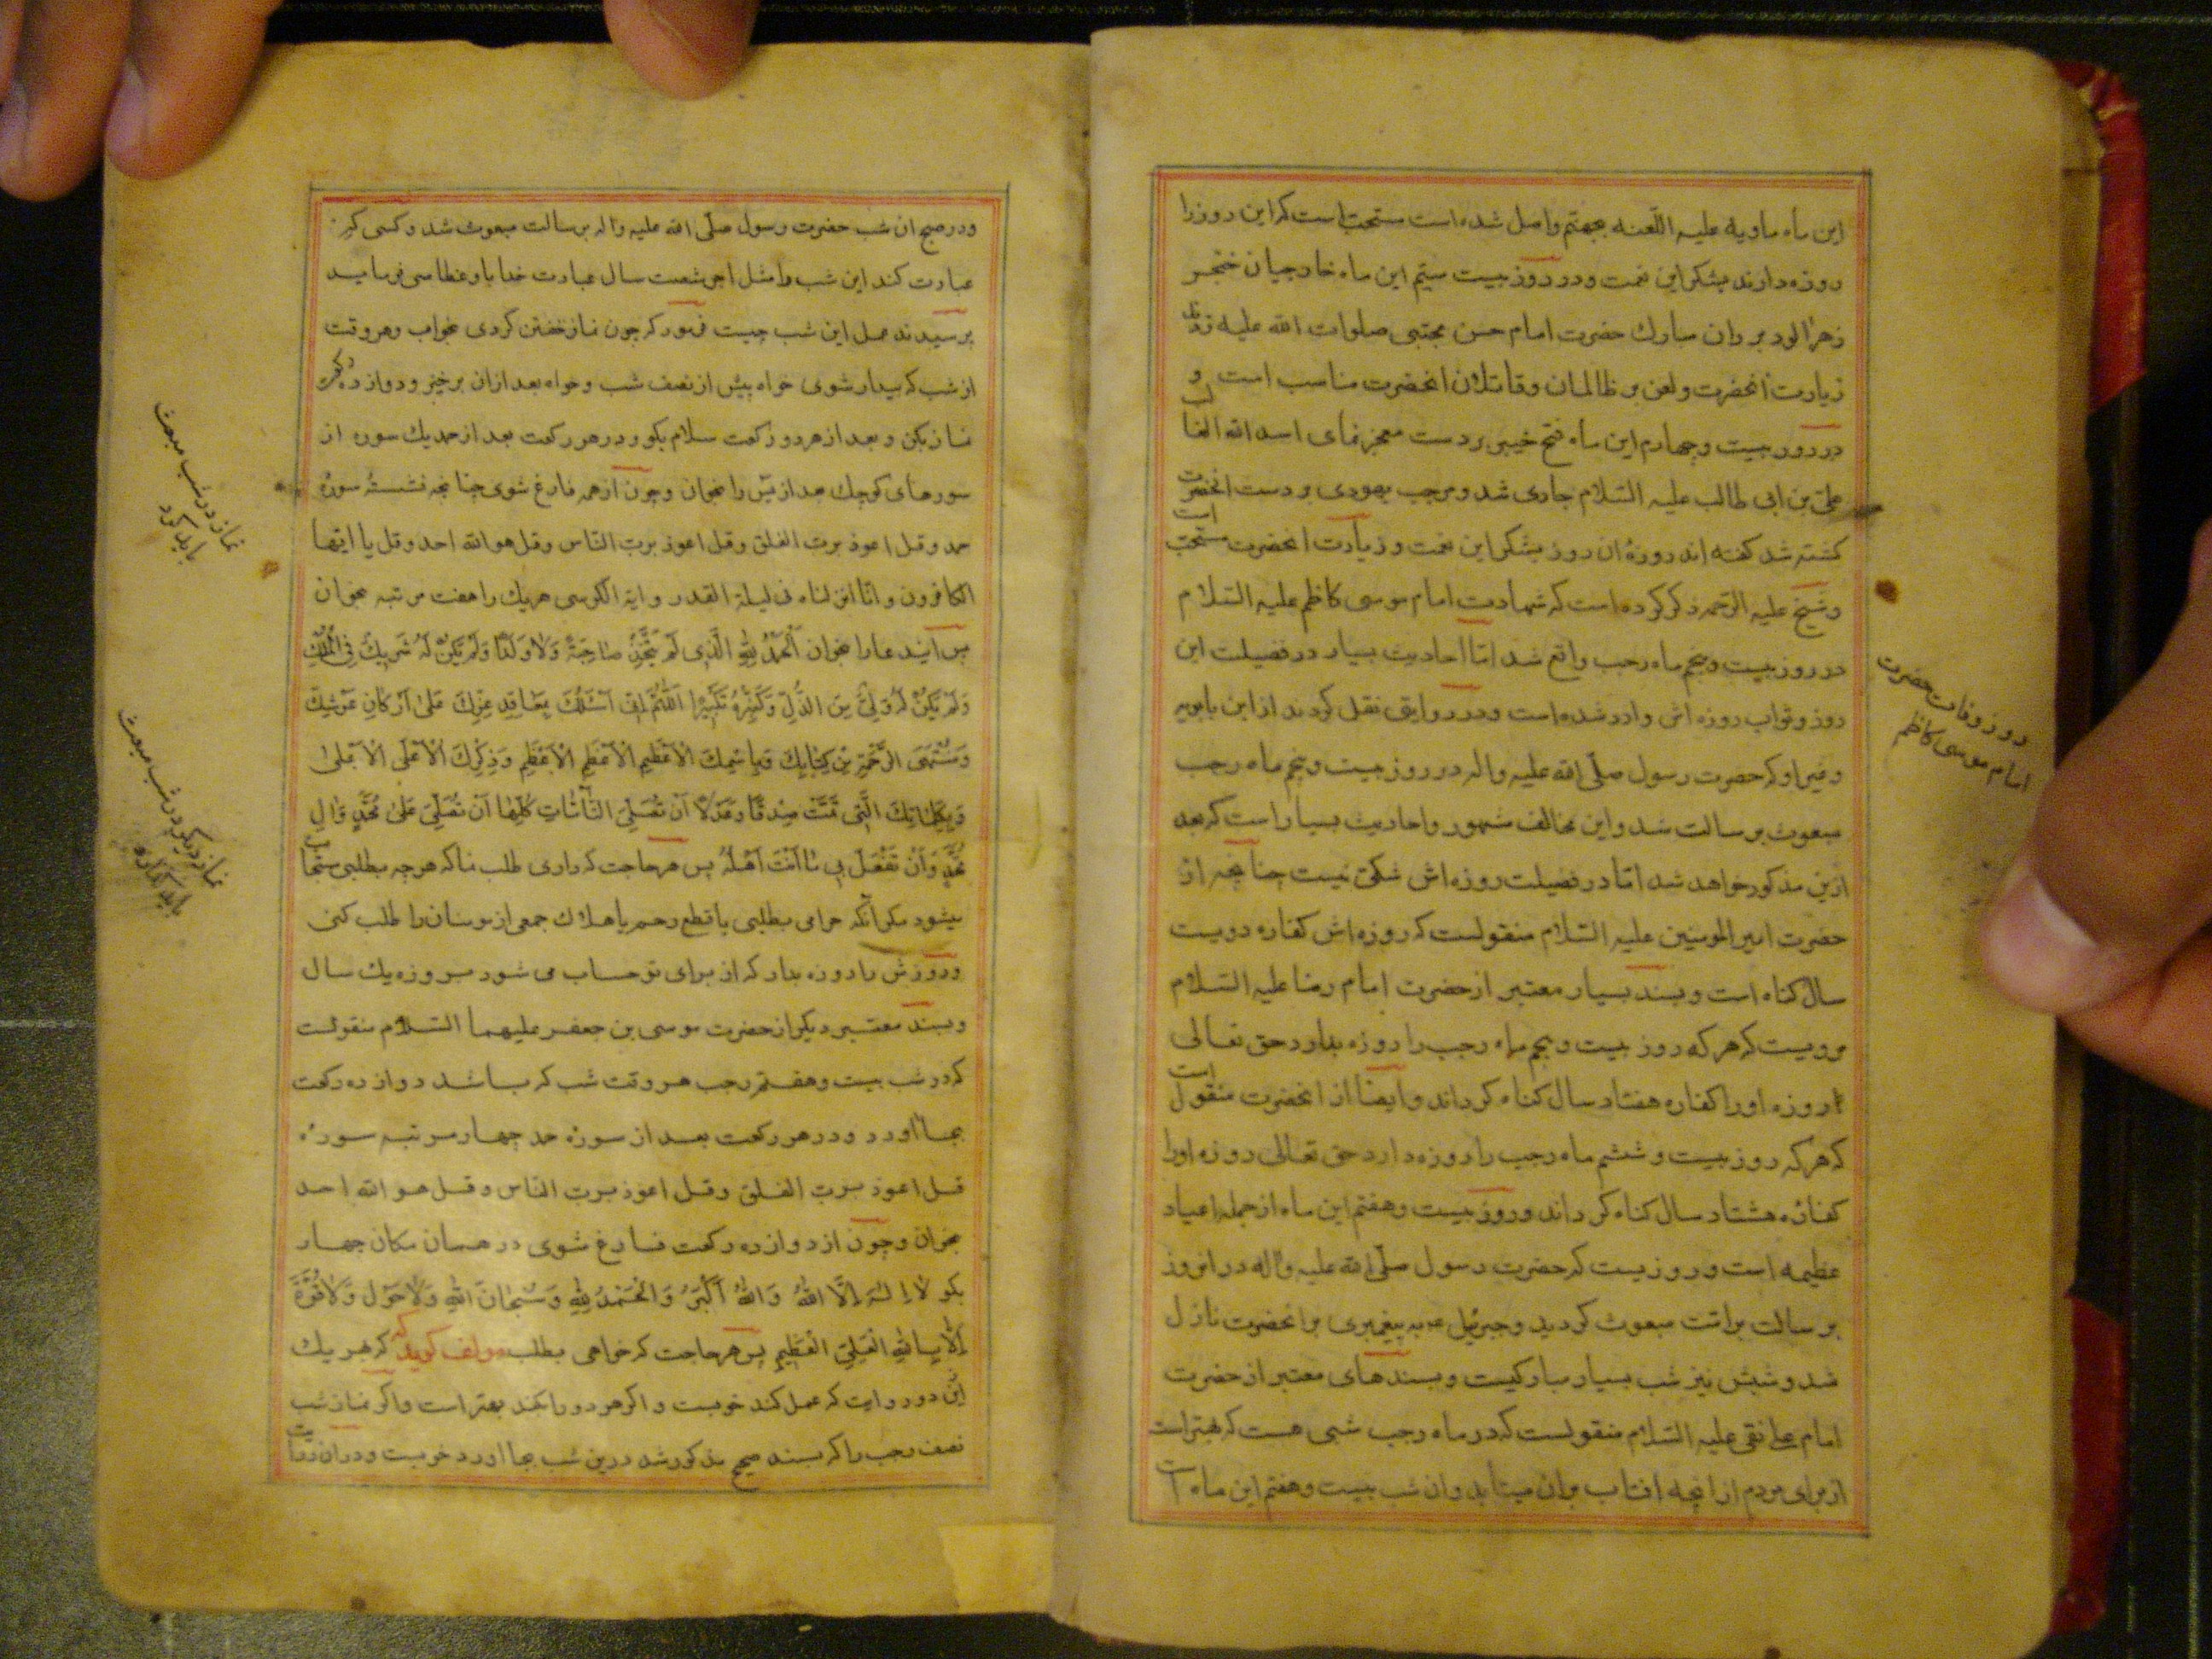 این ماه ماویه علیه اللعنه بجهنم واصل شده است مستحب است که این روز را
روزه دارند بشکر این نعمت و در روز بیست سیم این ماه خارجیان خنجر
زهرالود بر ران مبارک حضرت امام حسن مجتبی صلوات الله علیه زدند
زیارت انحضرت و لعن بر ظالمان و قاتلان انحضرت مناسب است و
در روز بیست و چهارم این ماه فتح خیبر بر دست معجزنمای اسد الله الغالب
علی بن ابی طالب علیه السلام جاری شد و مرحب یهودی بر دست انحضرت
کشته شد گفته اند روزهٔ ان روز بشکر این نعمت و زیارت انحضرت مستحب است
و شیخ علیه الرحمه ذکر کرده است که شهادت امام موسی کاظم علیه السلام
در روز بیست و پنجم ماه رجب واقع شد اما احادیث بسیار در فضیلت این
روز و ثواب روزه اش وارد شده است و در روایتی نقل کردند از ابن بابویه
و غیر او که حضرت رسول صلی الله علیه واله در روز بیست و پنجم ماه رجب
مبعوث برسالت شد و این مخالف مشهور و احادیث بسیار است که بعد
ازین مذکور خواهد شد اما در فضیلت روزه اش شکی نیست چنانچه از
حضرت امیر المومنین علیه السلام منقولست که روزه اش کفاره دویست
سال گناه است و بسند بسیار معتبر از حضرت امام رضا علیه السلام
مرویست که هر که روز بیست و پنجم ماه رجب را روزه بدارد حق تعالی
روزه او را کفاره هفتاد سال گناه گرداند و ایضا از انحضرت منقول است
که هر که روز بیست و ششم ماه رجب را روزه دارد حق تعالی روزه او را
کفاره هشتاد سال گناه گرداند و روز بیست و هفتم این ماه از جمله اعیاد
عظیمه است و روزیست که حضرت رسول صلی الله علیه و اله در انروز
برسالت بر امت مبعوث گردید و جبرئیل به پیغمبری بر انحضرت نازل
شد و شبش نیز شب بسیار مبارکیست و بسندهای معتبر از حضرت
امام علی نقی علیه السلام منقولست که در ماه رجب شبی هست که بهتر است
از برای مردم از انچه افتاب بران میتابد و ان شب بیست و هفتم این ماه است
روز وفات حضرت
امام موسی کاظم
و در صبح ان شب حضرت رسول صلی الله علیه واله برسالت مبعوث شد و کسی که
عبادت کند این شب را مثل اجر شصت سال عبادت خدا باو عطا می فرماید
پرسیدند عمل این شب چیست فرمود که چون نماز خفتن کردی بخواب و هر وقت
از شب که بیدار شوی خواه پیش از نصف شب و خواه بعد از ان برخیز و دوازده رکعت
نماز بکن و بعد از هر دو رکعت سلام بگو و در هر رکعت بعد از حمد یک سوره از
سورهای کوچک بعد از یس را بخوان و چون از همه فارغ شوی چنانچه نشستهٔ سورهٔ
حمد و قل اعوذ برب الفلق و قل اعوذ برب الناس و قل هو الله احد و قل یا ایها
الکافرون و انا انزلناه فی لیلة القدر و ایه الکرسی هر یک را هفت مرتبه بخوان
پس این دعا را بخوان اَلْحَمْدُ لِلّٰهِ الَّذی لَمْ یَتَّخِذْ صاحِبَةً وَلا وَلَدًا وَلَمْ یَکُنْ لَهُ شَریکٌ فِی الْمُلْکِ
وَلَمْ یَکُنْ لَهُ وَلِیٌّ مِنَ الذُّلِّ وَکَبِّرْهُ تَکْبیرًا اَللّٰهُمَّ اِنّی اَسْئَلُکَ بِمَعاقِدِ عِزِّکَ عَلیٰ اَرْکانِ عَرْشِکَ
وَمُنْتَهَی الرَّحْمَةِ مِنْ کِتابِکَ وَبِاسْمِکَ الْاَعْظَمِ الْاَعْظَمِ الْاَعْظَمِ وَذِکْرِکَ الْاَعْلَی الْاَعْلیٰ
وَبِکَلِماتِکَ الَّتی تَمَّتْ صِدْقًا وَعَدْلًا اَنْ تُصَلِّیَ التّامّاتِ کُلِّها اَنْ تُصَلِّیَ عَلیٰ مُحَمَّدٍ وَالِ
مُحَمَّدٍ وَاَنْ تَفْعَلَ بی ما اَنْتَ اَهْلُهُ پس هر حاجت که داری طلب نما که هر چه بطلبی مستجاب
میشود مگر انکه حرامی بطلبی یا قطع رحم یا هلاک جمعی از مومنان را طلب کنی
و روزش را روزه بدار که از برای تو حساب می شود بروزه یک سال
و بسند معتبر دیگر از حضرت موسی بن جعفر علیهما السلام منقولست
که در شب بیست و هفتم رجب هر وقت شب که باشد دوازده رکعت
بجا اورد و در هر رکعت بعد از سوره حمد چهار مرتبه سوره
قل اعوذ برب الفلق و قل اعوذ برب الناس و قل هو الله احد
بخوان و چون از دوازده رکعت فارغ شوی در همان مکان چهار
بگو لا اِلٰهَ اِلَّا اللهُ وَاللهُ اَکْبَرُ وَالْحَمْدُ لِلّٰهِ وَسُبْحانَ اللهِ وَلا حَوْلَ وَلا قُوَّةَ
اِلّا بِاللهِ الْعَلِیِّ الْعَظیمِ پس هر حاجت که خواهی بطلب مولف گوید که هر یک
این دو روایت که عمل کند خوبست و اگر هر دو را بکند بهتر است و اگر نماز شب
نصف رجب را که بسند صحیح مذکور شد درین شب بجا اورد خوبست و دران
نماز در شب مبعث
باید کرد
نماز دیگر در شب مبعث